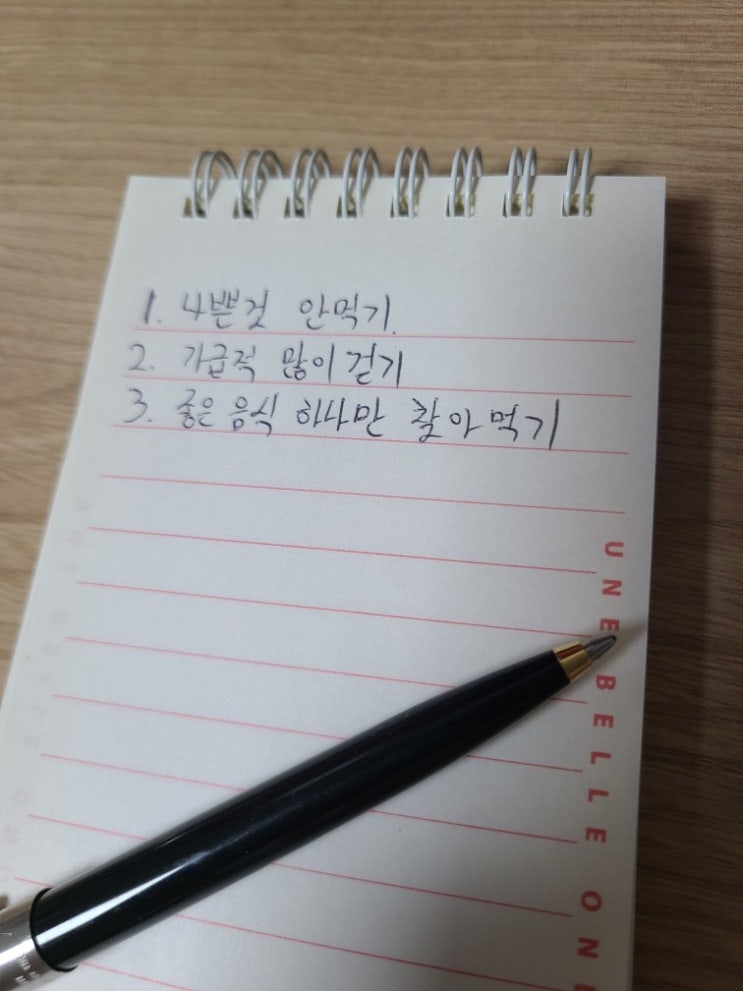 1. 나쁜것 안먹기.
2. 가급적 많이 걷기
3. 좋은 음식 하나만 찾아먹기
UNE BELLE ON